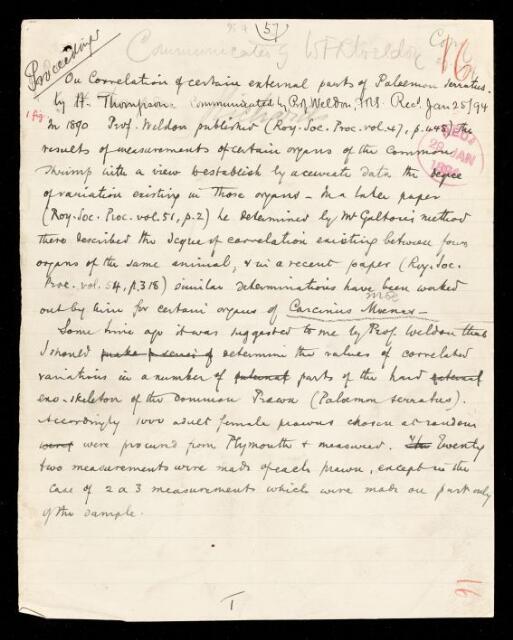 57
Proceedings
Communicated by W F R Weldon
Copy
16
On Correlation of certain external parts of Palæmon serratus.
by H. Thompson. Communicated by Prof Weldon, FRS. Recd. Jan 25/94
1 fig
In 1890 Prof. Weldon published (Roy. Soc. Proc. vol. 47, p. 445) the
results of measurements of certain organs of the common
shrimp with a view to establish by accurate data the degree
of variation existing in those organs - In a later paper
(Roy. Soc. Proc. vol. 51, p. 2) he determined by Mr Galton's method
there described the degree of correlation existing between four
organs of the same animal, & in a recent paper (Roy. Soc.
Proc. vol. 54, p. 318) similar determinations have been worked
out by him for certain organs of Carcinus Moenas -
Some time ago it was suggested to me by Prof. Weldon that
I should make a series of determine the values of correlated
variations in a number of external parts of the hard external
exo-skeleton of the common Prawn (Palæmon serratus).
Accordingly 1000 adult female prawns chosen at random
were were procured from Plymouth & measured. The Twenty
two measurements were made of each prawn, except in the
case of 2 or 3 measurements which were made on part only
of the sample.
1
16